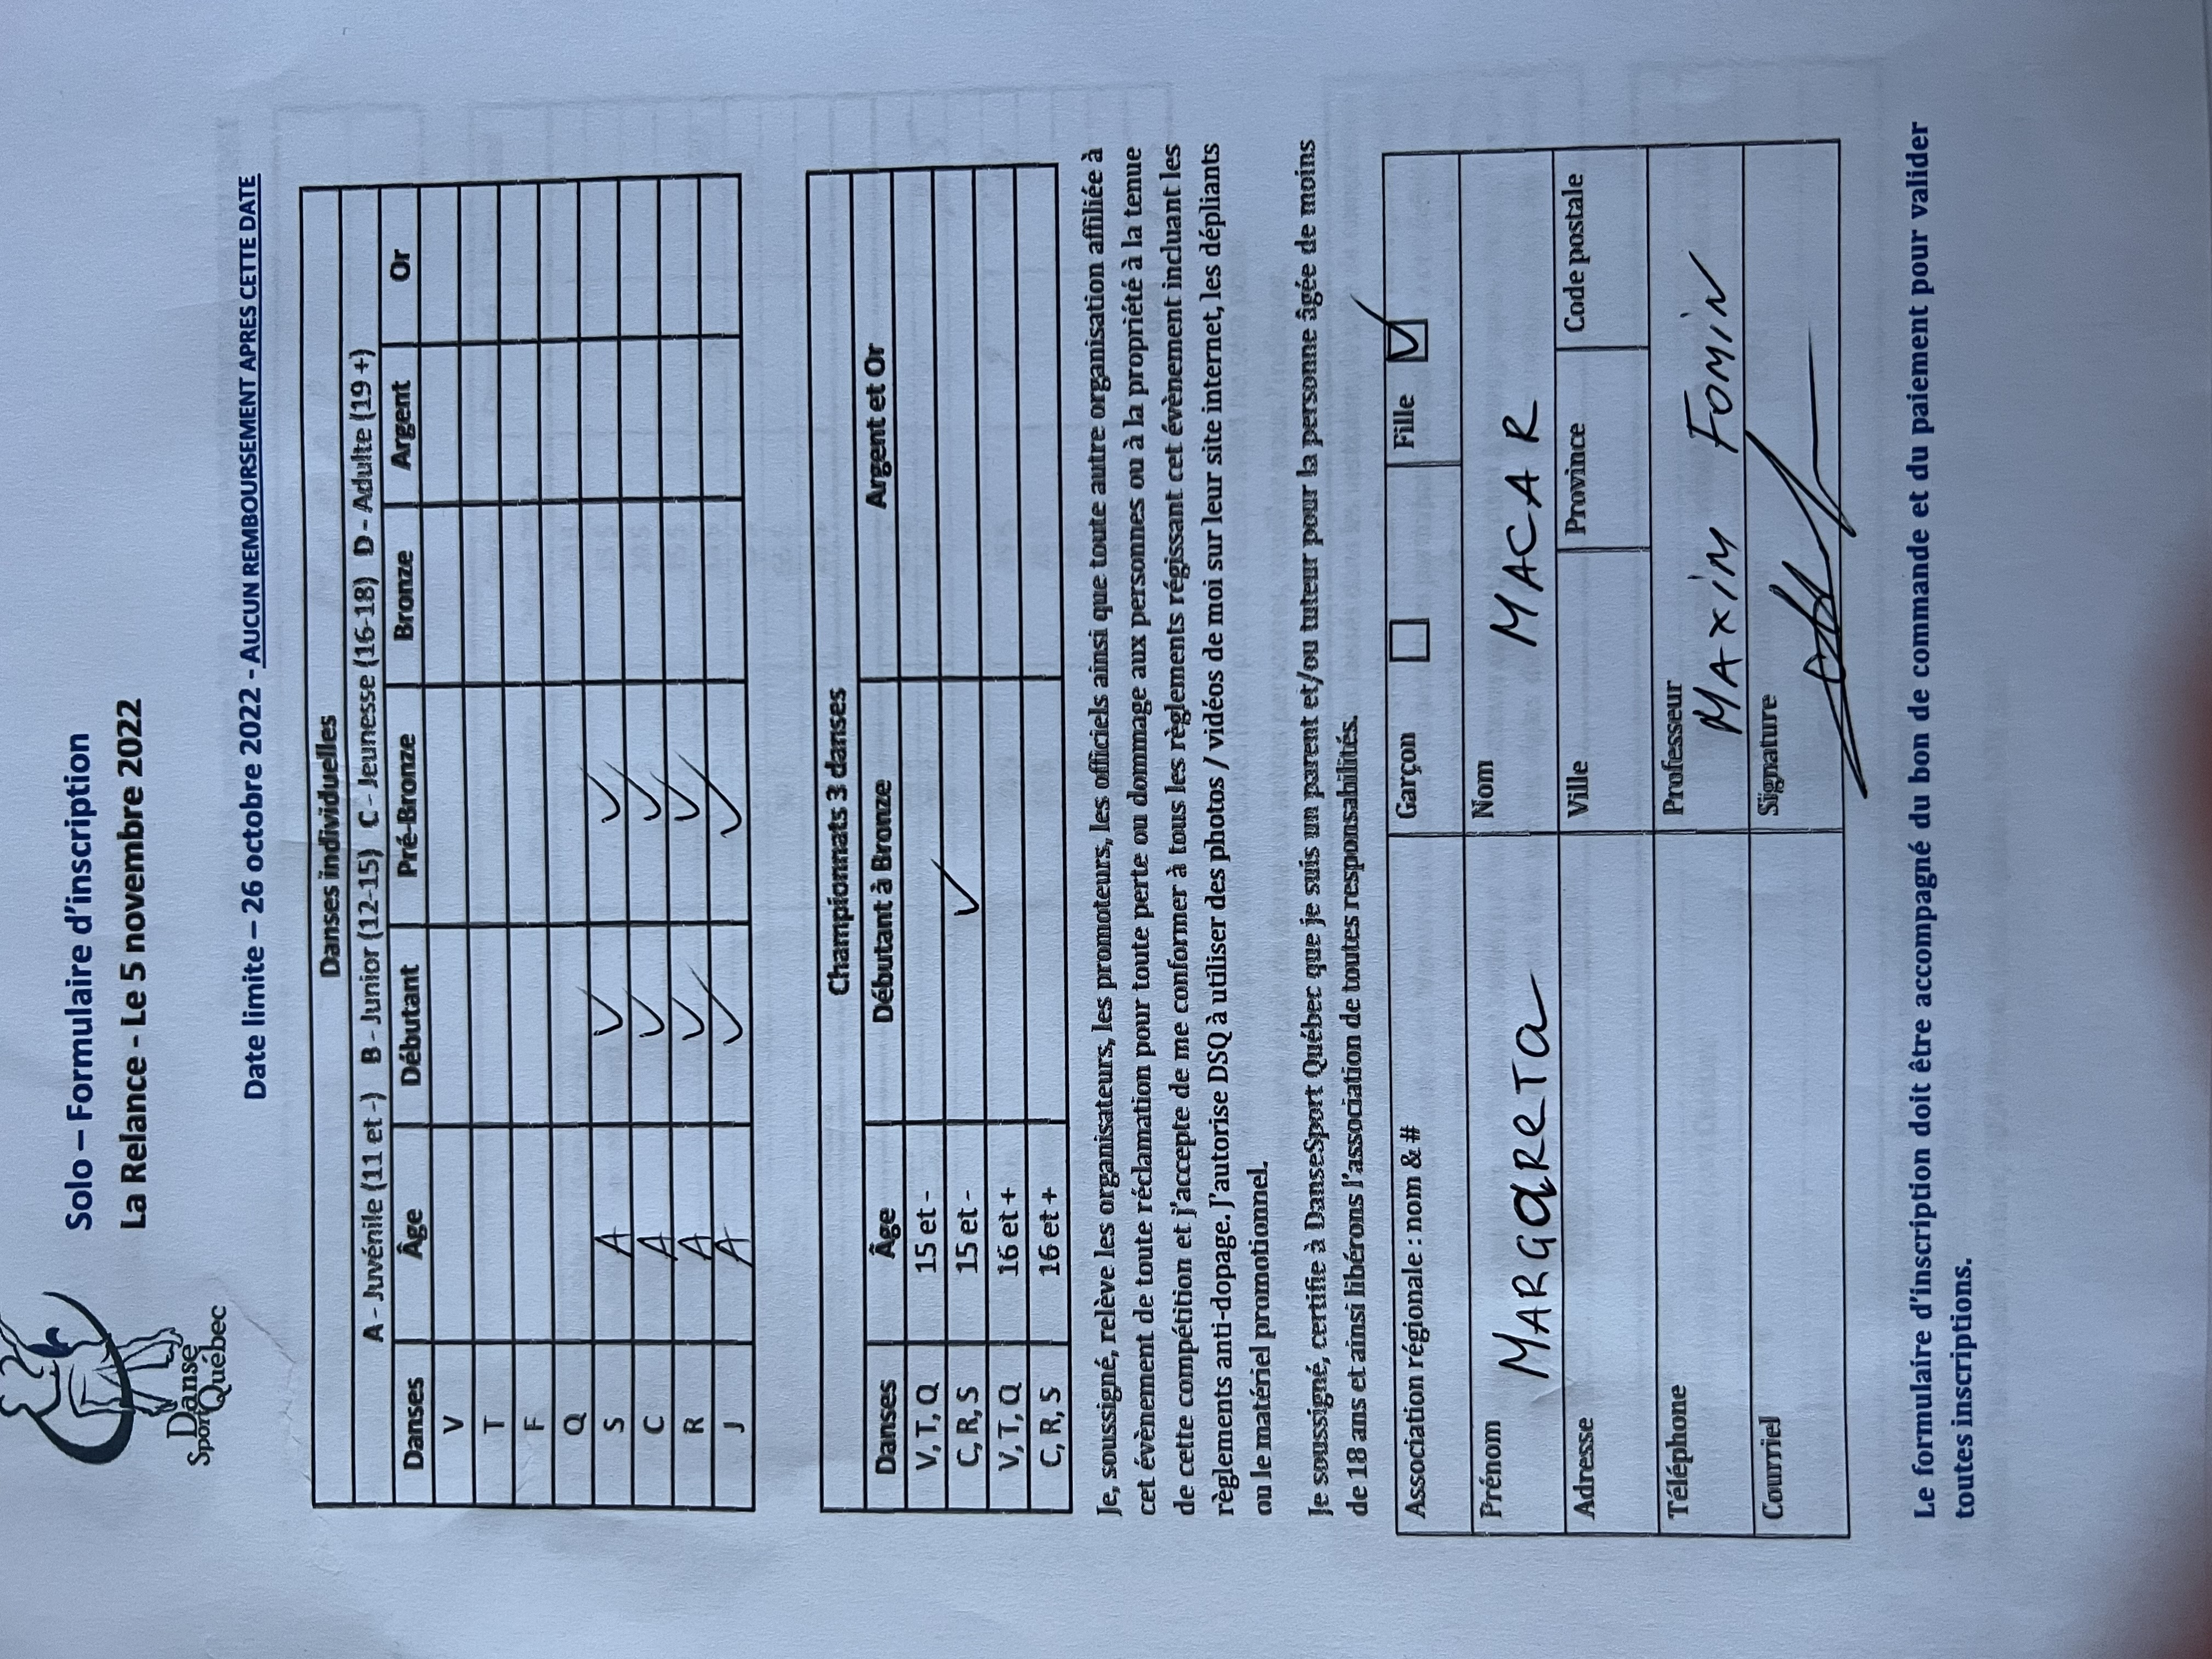 Danse
Sport Québec
Solo – Formulaire d'inscription
La Relance - Le 5 novembre 2022
Date limite – 26 octobre 2022 - AUCUN REMBOURSEMENT APRES CETTE DATE
Danses individuelles
A - Juvénile (11 et -) B - Junior (12-15) C - Jeunesse (16-18) D - Adulte (19 +)
Danses Âge Débutant Pré-Bronze Bronze Argent Or
V
T
F
Q
S A ✓ ✓
C A ✓ ✓
R A ✓ ✓
J A ✓ ✓
Championnats 3 danses
Danses Âge Débutant à Bronze Argent et Or
V, T, Q 15 et -
C, R, S 15 et - ✓
V, T, Q 16 et +
C, R, S 16 et +
Je, soussigné, relève les organisateurs, les promoteurs, les officiels ainsi que toute autre organisation affiliée à
cet évènement de toute réclamation pour toute perte ou dommage aux personnes ou à la propriété à la tenue
de cette compétition et j'accepte de me conformer à tous les règlements régissant cet évènement incluant les
règlements anti-dopage. J'autorise DSQ à utiliser des photos / vidéos de moi sur leur site internet, les dépliants
ou le matériel promotionnel.
Je soussigné, certifie à DanseSport Québec que je suis un parent et/ou tuteur pour la personne âgée de moins
de 18 ans et ainsi libérons l'association de toutes responsabilités.
Association régionale : nom & # Garçon ☐ Fille ☑
Prénom MARGaReTa Nom MACAR
Adresse Ville Province Code postale
Téléphone Professeur MAXiM FOMiN
Courriel Signature
Le formulaire d'inscription doit être accompagné du bon de commande et du paiement pour valider
toutes inscriptions.